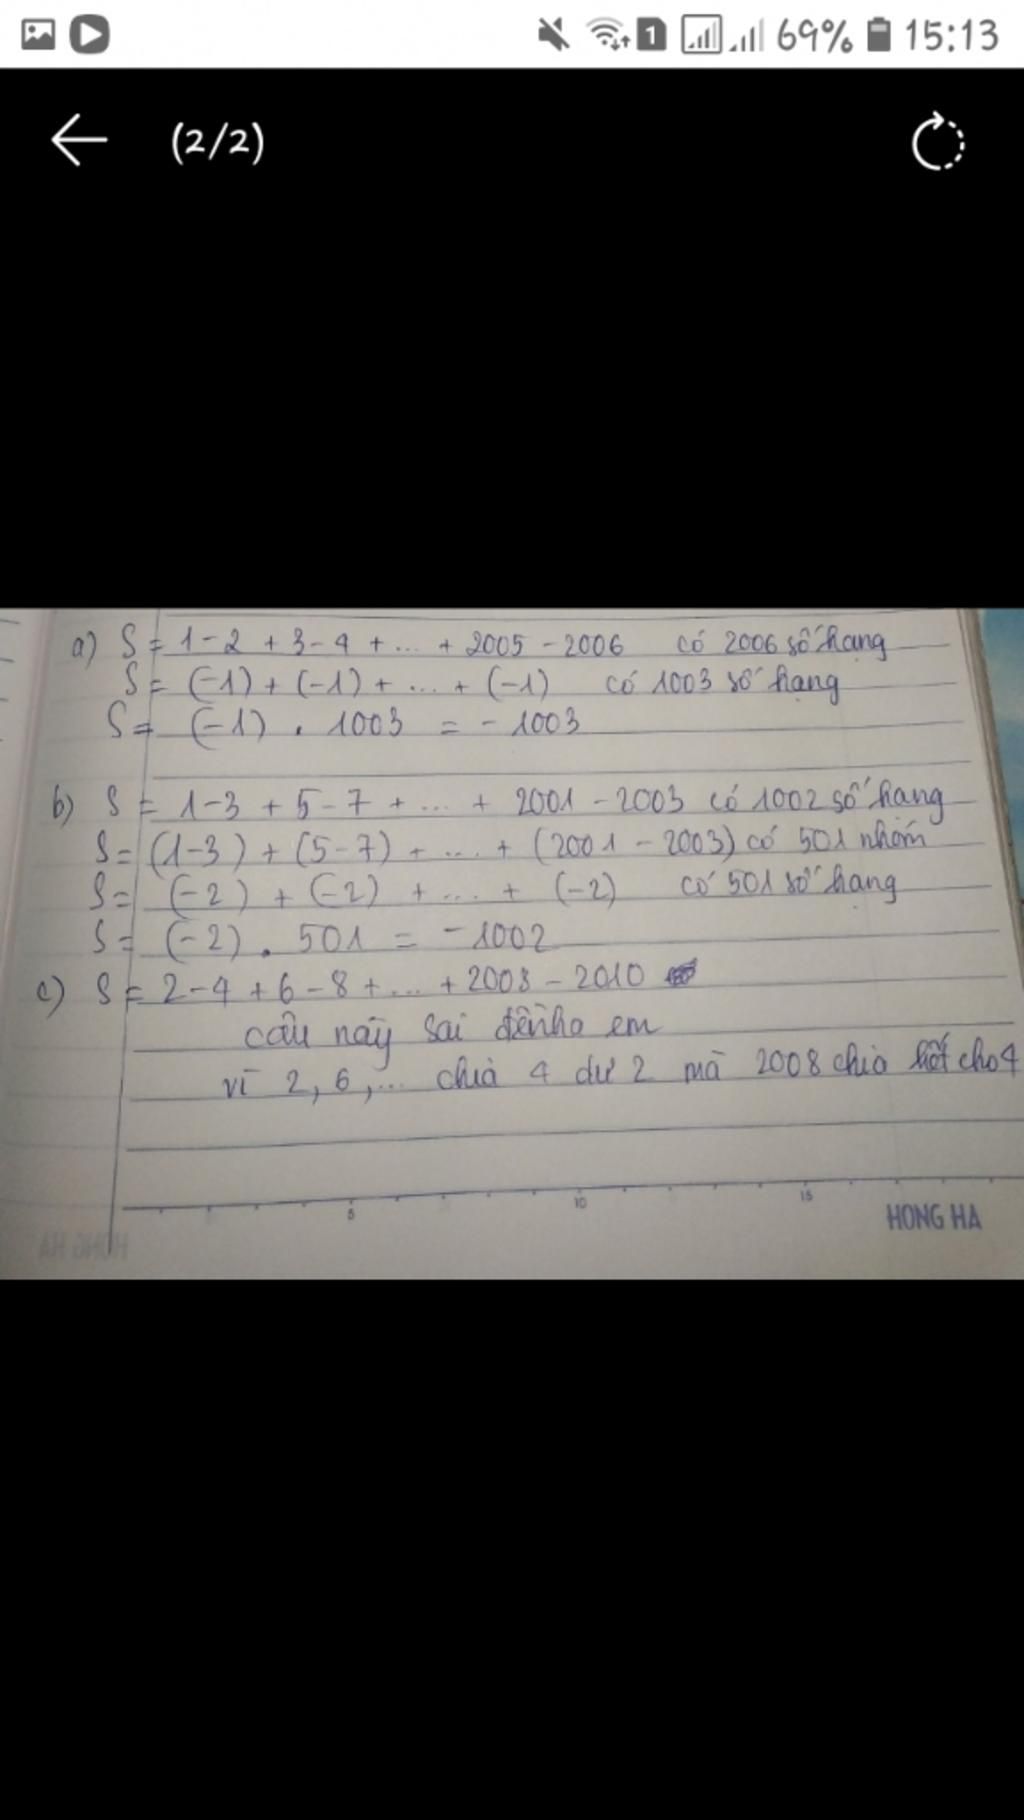 69% 15:13
(2/2)
a) S = 1-2 + 3-4 + ... + 2005 - 2006 có 2006 số hạng
S = (-1) + (-1) + ... + (-1) có 1003 số hạng
S = (-1) . 1003 = - 1003
b) S = 1-3 + 5-7 + ... + 2001 - 2003 có 1002 số hạng
S = (1-3) + (5-7) + ... + (2001 - 2003) có 501 nhóm
S = (-2) + (-2) + ... + (-2) có 501 số hạng
S = (-2) . 501 = -1002
c) S = 2-4 + 6-8 + ... + 2008 - 2010
câu này sai đề nha em
vì 2, 6, ... chia 4 dư 2 mà 2008 chia hết cho 4
5 10 15
HONG HA